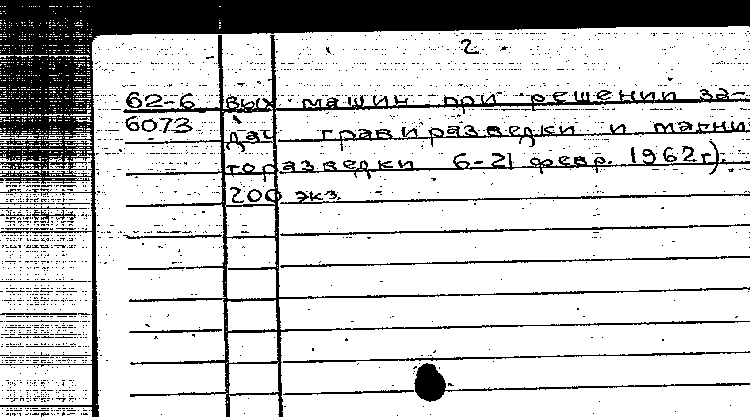 2
62-6 вых машин при решении за-
6073 дач гравиразведки и магни
торазведки 6-21 февр. 1962г).
200 экз.